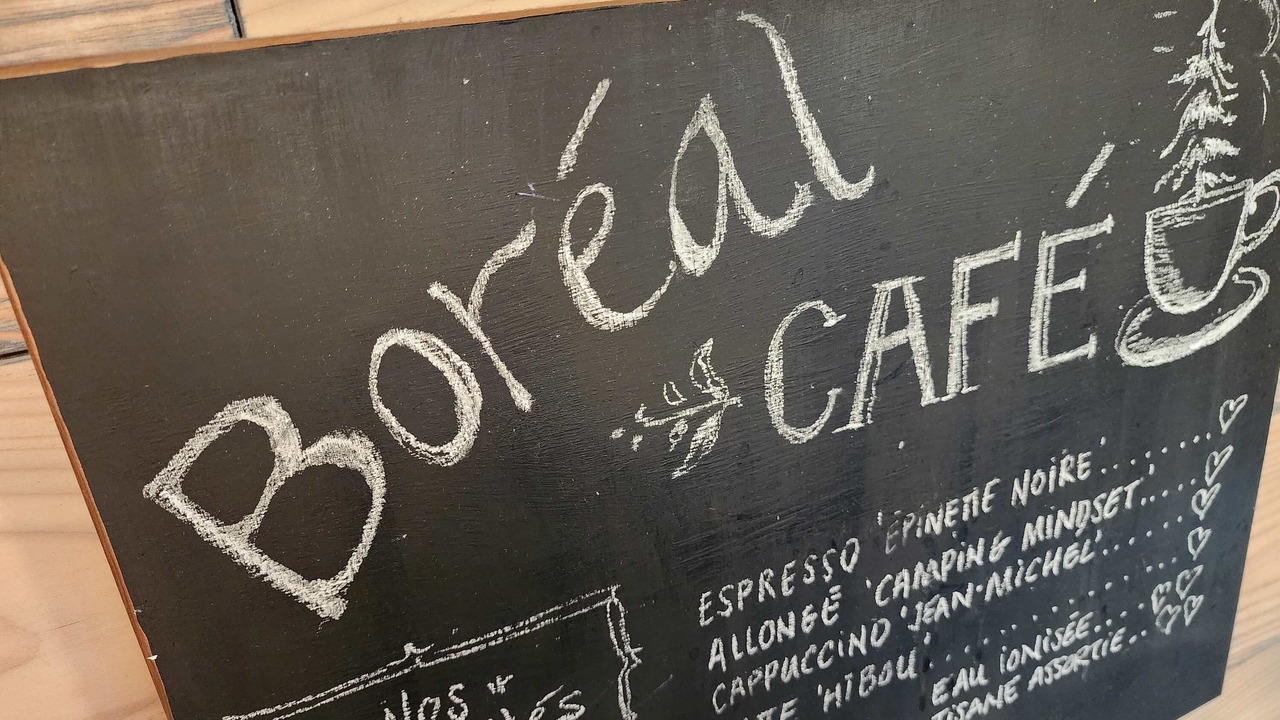 Boréal
CAFÉ
ESPRESSO 'ÉPINETTE NOIRE'
ALLONGÉ 'CAMPING MINDSET'
CAPPUCCINO 'JEAN-MICHEL'
'HIBOU'
EAU IONISÉE
TISANE ASSORTIE
Nos